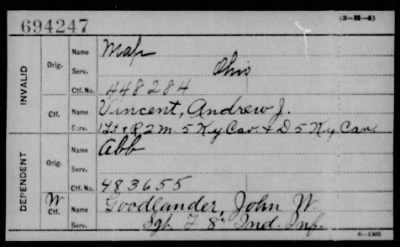 694247
(3-M-4)
INVALID
Orig.
Name Map
Serv. Ohio
Ctf. No. 448284
Ctf.
Name Vincent, Andrew J.
Serv. 5 Ky Cav. & D 5 Ky Cav.
DEPENDENT
Orig.
Name Abb
Serv.
Ctf. No. 483655
W Ctf.
Name Goodlander, John W.
Sgt F 8" Ind. Inf.